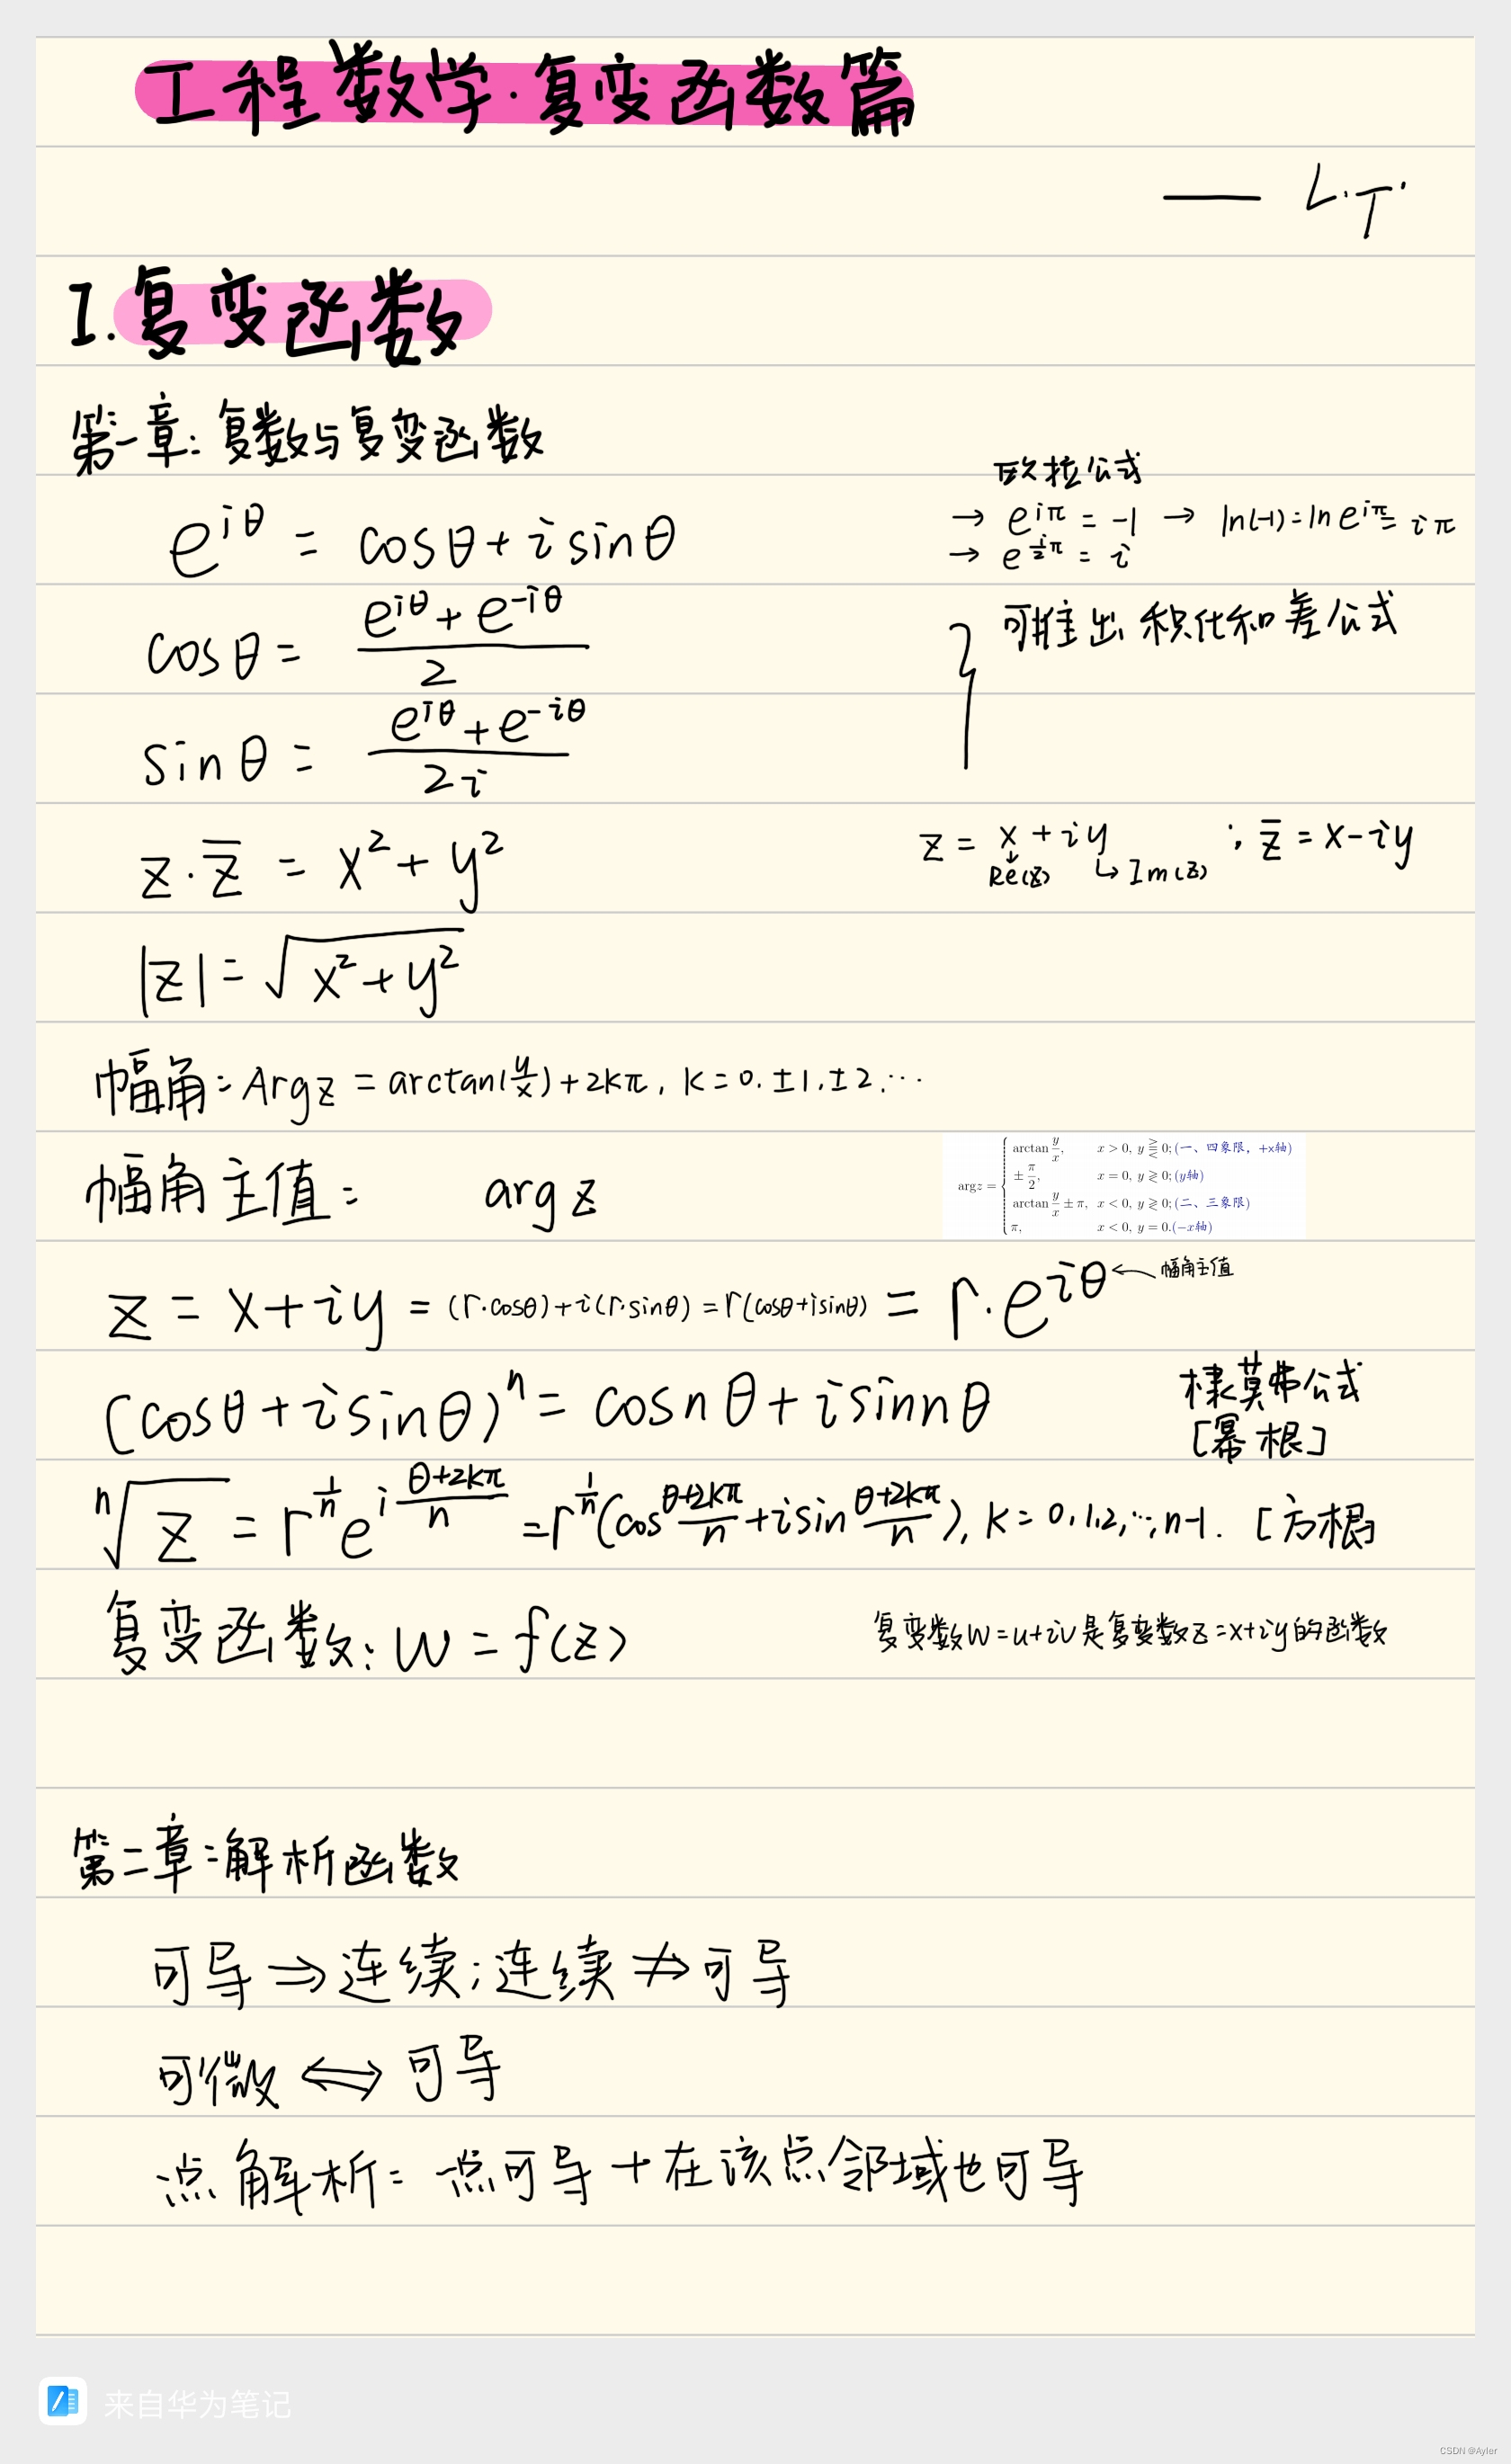 工程数学·复变函数篇
—— L.T.
I.复变函数
第一章:复数与复变函数
欧拉公式
e^{iθ} = cosθ + i sinθ
→ e^{iπ} = -1 → ln(-1) = ln e^{iπ} = iπ
→ e^{\frac{i}{2}π} = i
cosθ = \frac{e^{iθ} + e^{-iθ}}{2}
可推出 积化和差公式
sinθ = \frac{e^{iθ} + e^{-iθ}}{2i}
z·\bar{z} = x² + y²
z = x + iy ; \bar{z} = x - iy
Re(z) ↳ Im(z)
|z| = \sqrt{x² + y²}
幅角: Arg z = arctan(\frac{y}{x}) + 2kπ, k = 0, ±1, ±2, …
幅角主值: arg z
argz = { arctan \frac{y}{x}, x > 0, y ⋛ 0; (一、四象限, +x轴)
± \frac{π}{2}, x = 0, y ≷ 0; (y轴)
arctan \frac{y}{x} ± π, x < 0, y ≷ 0; (二、三象限)
π, x < 0, y = 0. (−x轴)
z = x + iy = (r·cosθ) + i(r·sinθ) = r(cosθ + isinθ) = r·e^{iθ} ← 幅角主值
(cosθ + i sinθ)^n = cosnθ + i sinnθ
棣莫弗公式
[幂根]
\sqrt[n]{z} = r^{\frac{1}{n}} e^{i\frac{θ+2kπ}{n}} = r^{\frac{1}{n}}(cos\frac{θ+2kπ}{n} + i sin\frac{θ+2kπ}{n}), k = 0,1,2,…,n-1. [方根]
复变函数: W = f(z)
复变数W=u+iv是复变数z=x+iy的函数
第二章:解析函数
可导 ⇒ 连续; 连续 ⇏ 可导
可微 ⟺ 可导
一点解析: 一点可导 + 在该点邻域也可导
来自华为笔记
CSDN @Ayler